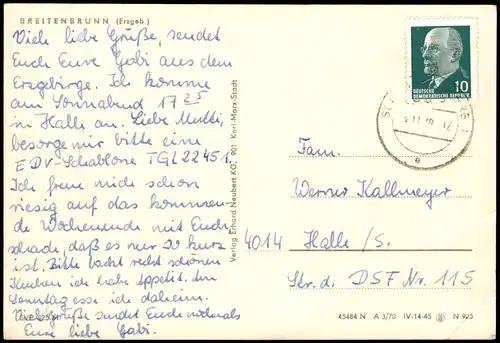 BREITENBRUNN (Erzgeb.)
Viele liebe Grüße, sendet
Euch Eure Gabi aus dem
Erzgebirge. Ich komme
am Sonnabend 17 25
in Halle an. Liebe Mutti,
besorge mir bitte eine
EDV-Schablone TGL 22451.
Ich freue mich schon
riesig auf das kommen-
de Wochenende mit Euch
schade, daß es nur so kurz
ist. Bitte backt recht schönen
Kuchen ich habe Appetit. Am
Sonntag esse ich daheim.
Viele Grüße sendet Euch nochmals
Eure liebe Gabi.
Verlag Erhard Neubert KG, 901 Karl-Marx-Stadt
DEUTSCHE
DEMOKRATISCHE REPUBLIK
10
Fam.
Werner Kallmeyer
4014 Halle/S.
Str. d. DSF Nr. 115
45484 N A 3/70 IV-14-45 N 925